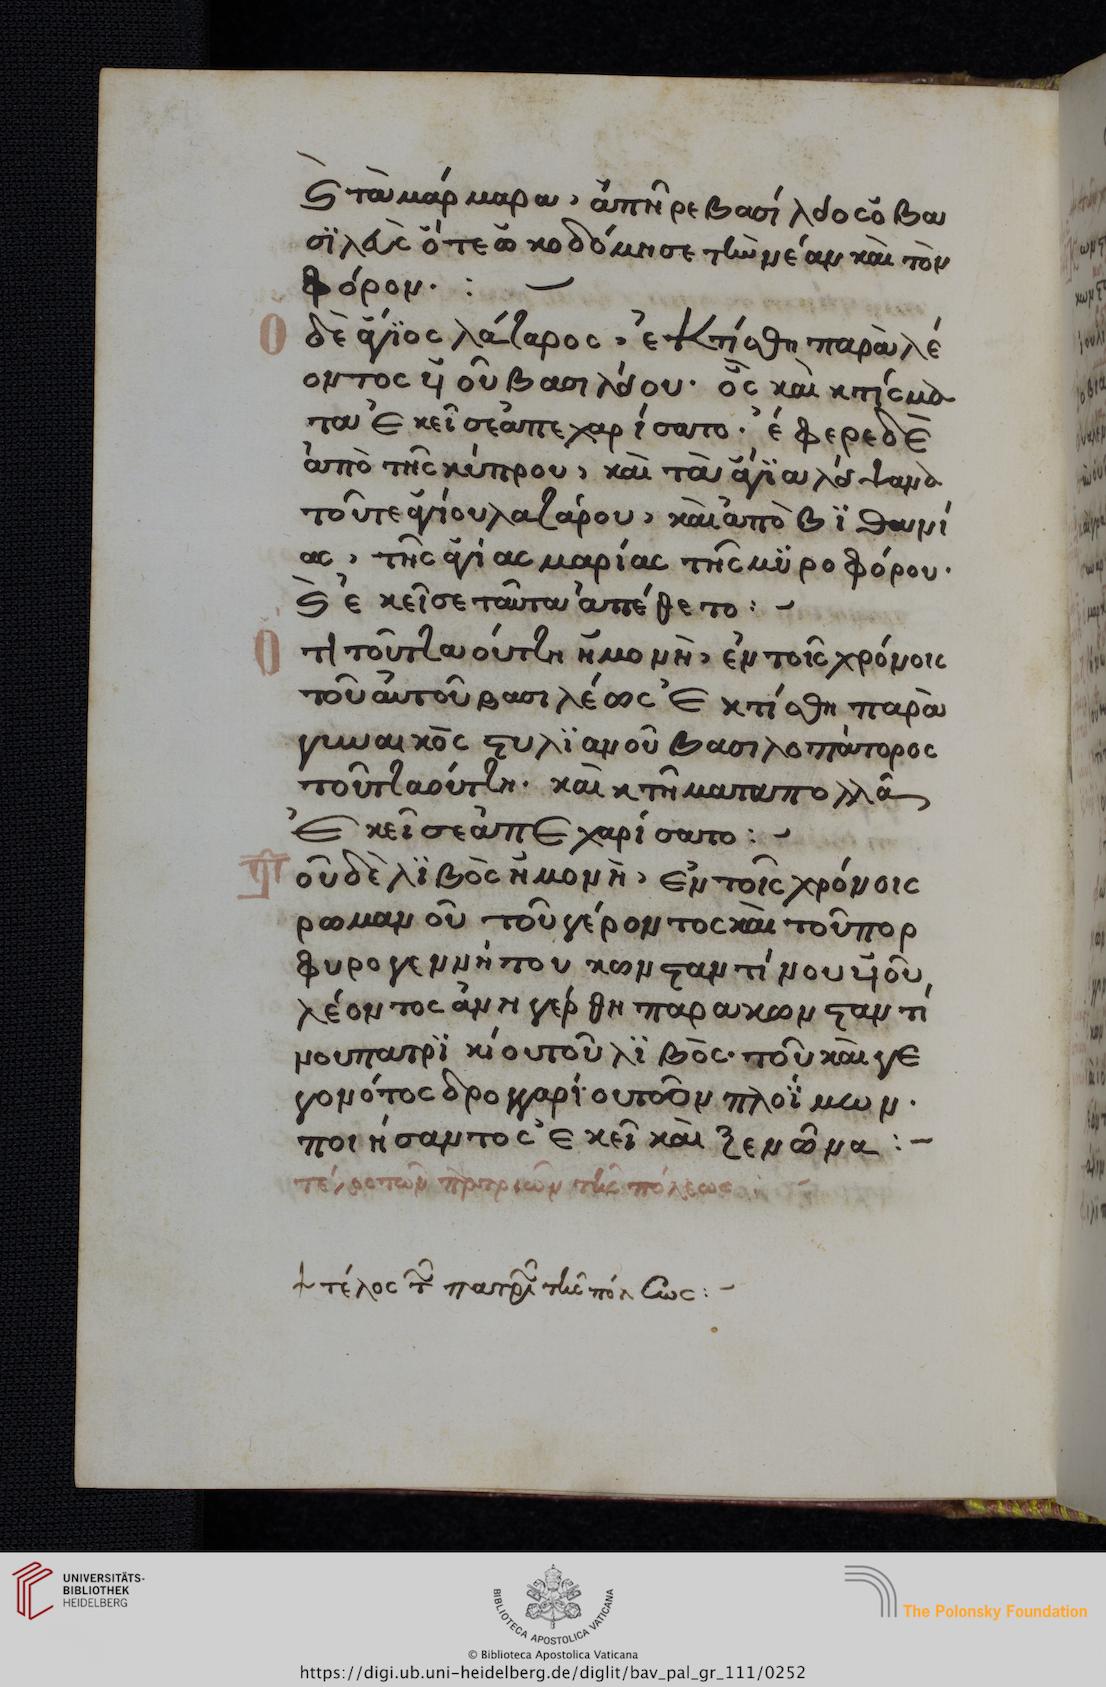 Ϛ τὰ μάρμαρα, ἀπῆρε βασίλειος ὁ βα
σϊλεὺς ὅτε ὠκοδόμησε τὴν νέαν καὶ τὸν
φόρον· :
Ὁ δὲ ἅγϊος λάζαρος, ἐκτίσθη παρὰ λέ
οντος υἱοῦ βασιλείου· ὃς καὶ κτίσμα
τα ἐκεῖσε ἀπεχαρίσατο· ἔφερε δὲ
ἀπὸ τῆς κύπρου, καὶ τὰ ἅγϊα λείψανα
τοῦ τε ἁγίου λαζάρου, καὶ ἀπὸ βϊθανί
ας, τῆς ἁγίας μαρίας τῆς μϋροφόρου·
Ϛ ἐκεῖσε ταῦτα ἀπέθετο : ~
Ὅτι τοῦ τζαούτζη ἡ μονὴ, ἐν τοῖς χρόνοις
τοῦ αὐτοῦ βασιλέως ἐκτίσθη παρὰ
γυναικὸς στυλϊανοῦ βασιλοπάτορος
τοῦ τζαούτζη· καὶ κτήματα πολλὰ
ἐκεῖσε ἀπεχαρίσατο : ~
Τοῦ δὲ λϊβὸς ἡ μονὴ, ἐν τοῖς χρόνοις
ρωμανοῦ τοῦ γέροντος καὶ τοῦ πορ
φυρογεννήτου κωνσταντίνου υἱοῦ
λέοντος ἀνηγέρθη παρα κωνσταντί
νου πατρϊκίου τοῦ λϊβὸς· τοῦ καὶ γε
γονότος δρουγγαρίου τῶν πλοΐμων·
ποιήσαντος ἐκεῖ καὶ ξενῶνα : ~
τέλος τῶν πατριῶν τῆς πόλεως : ~
+ τέλος τῶν πατρίων τῆς πόλεως : ~
UNIVERSITÄTS-
BIBLIOTHEK
HEIDELBERG
BIBLIOTECA APOSTOLICA VATICANA
The Polonsky Foundation
© Biblioteca Apostolica Vaticana
https://digi.ub.uni-heidelberg.de/diglit/bav_pal_gr_111/0252